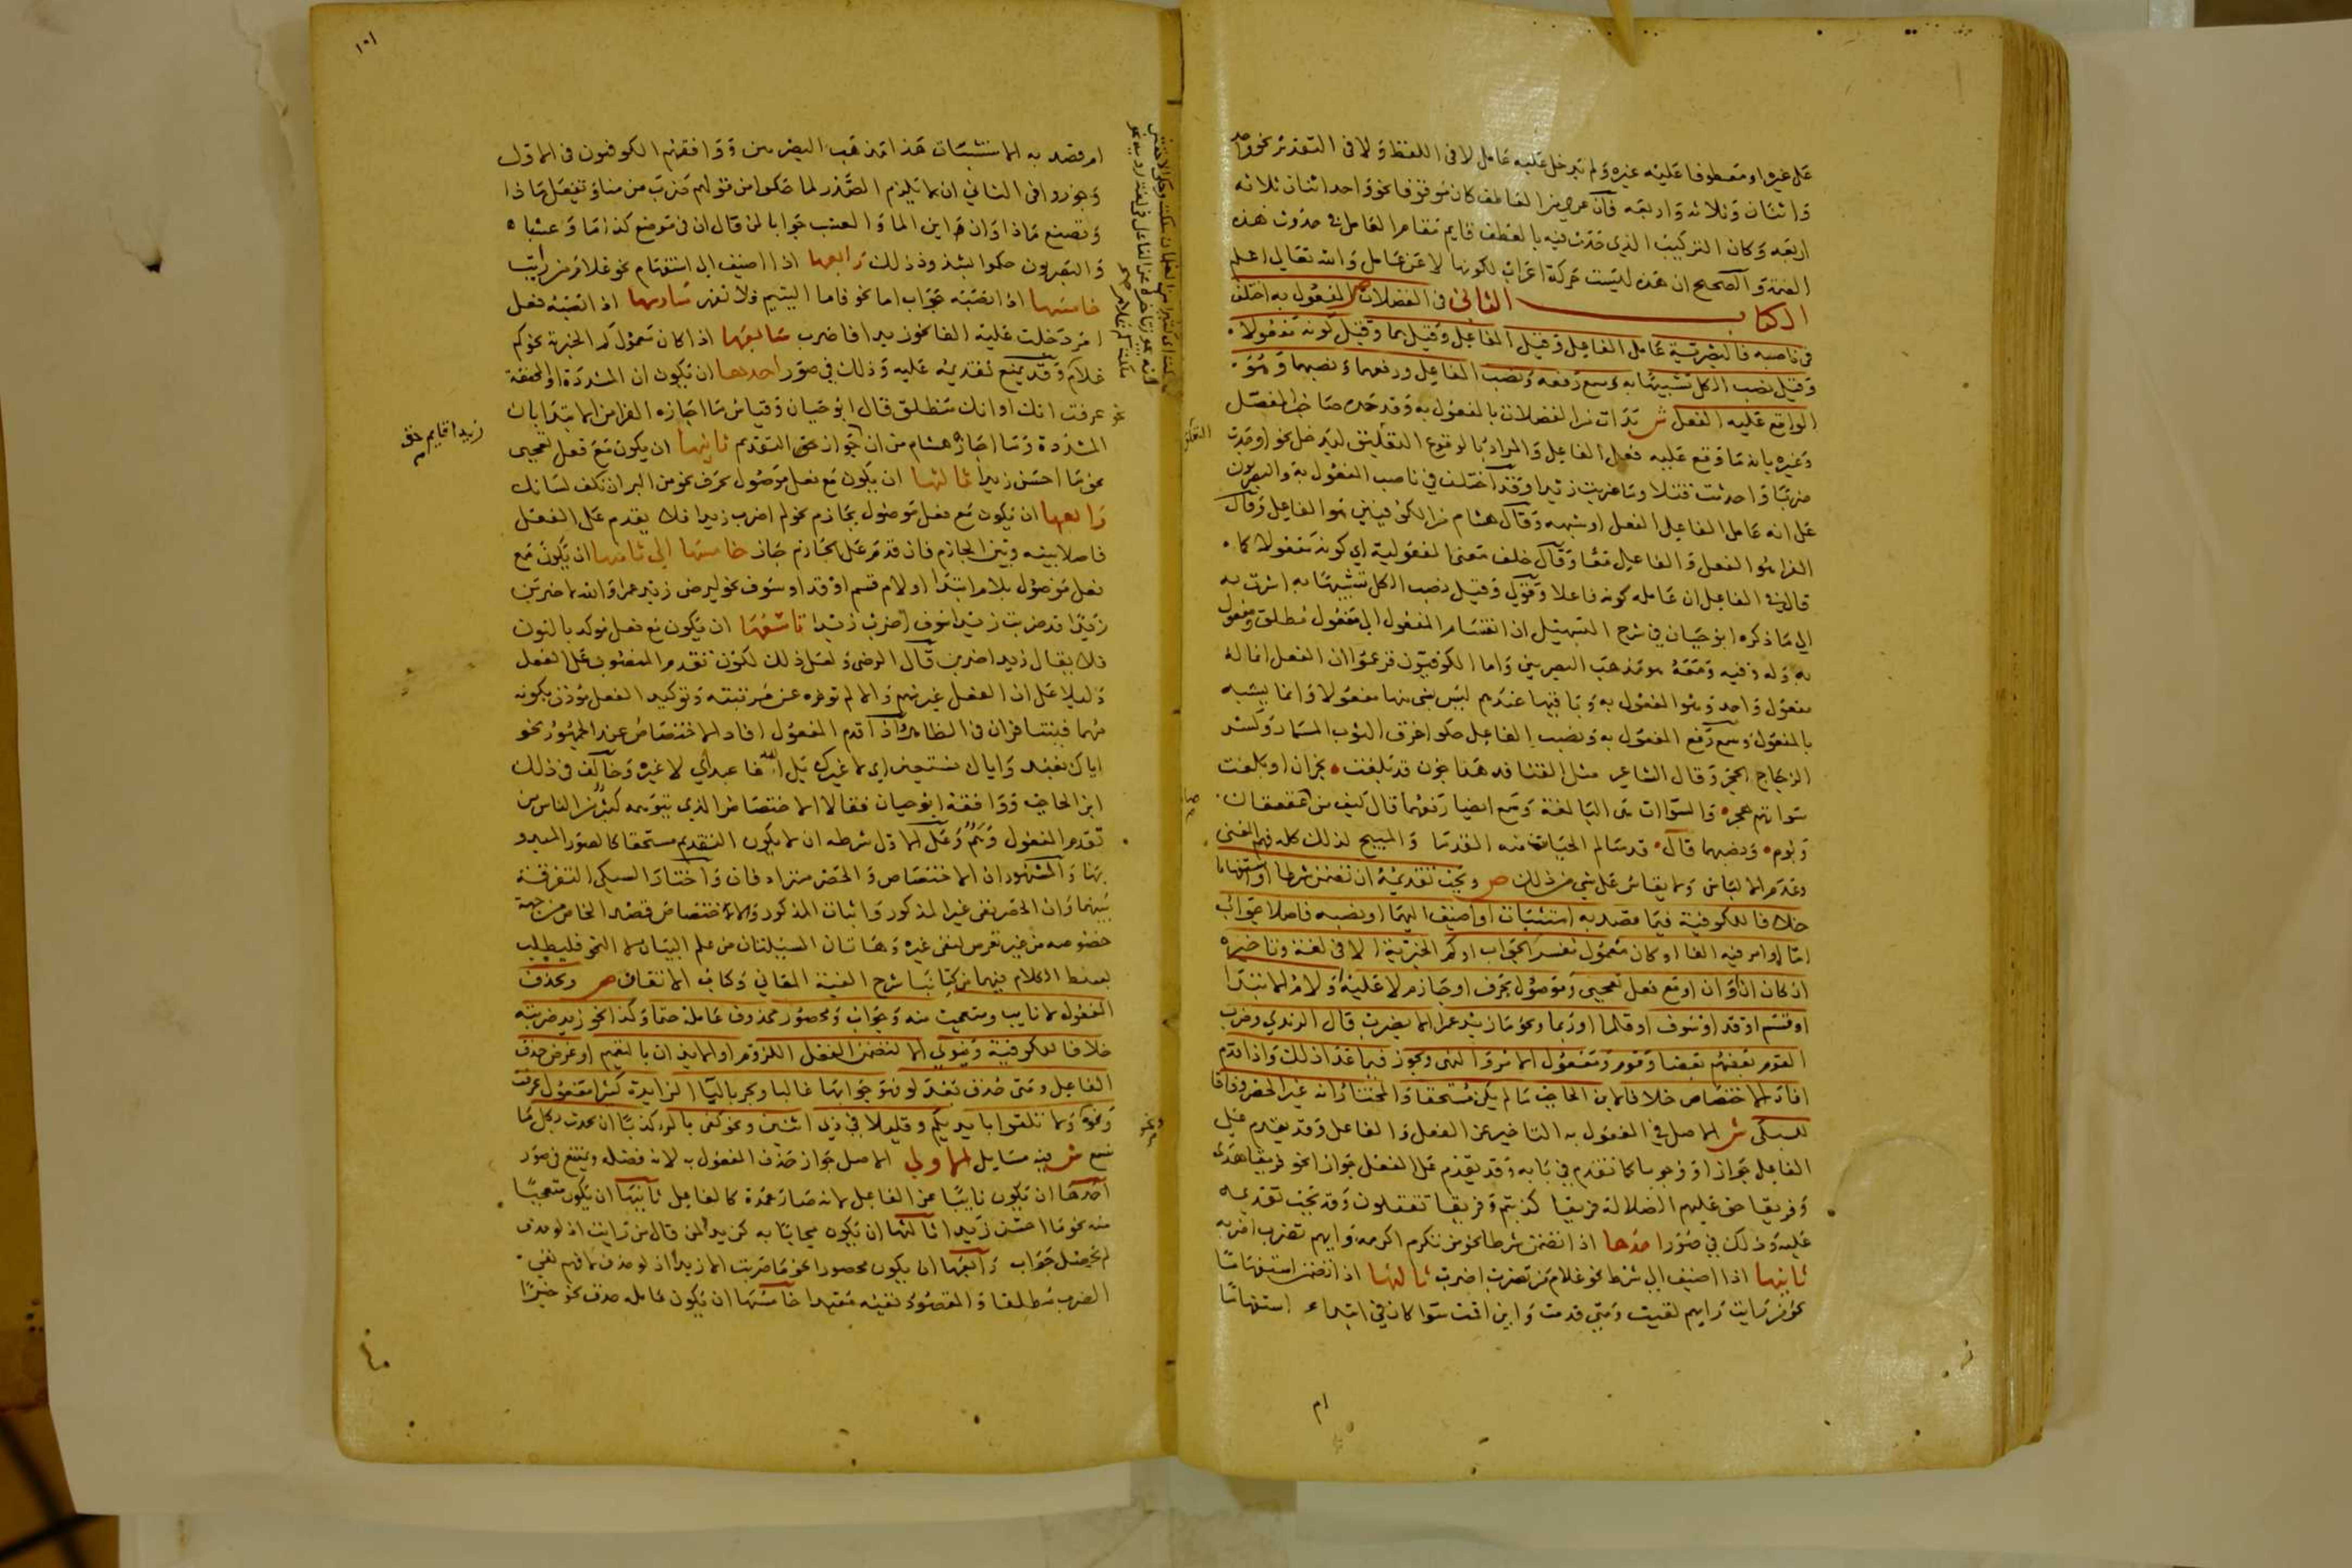 على غيره او معطوفا عليه غيره ولم تدخل عليه عامل لا في اللفظ ولا في التقدير نحو واحد
واثنان وثلاثة واربعة فان عري من العاطف كان موقوفا نحو واحد اثنان ثلاثه
اربعه وكان التركيب الذي حدث فيه بالعطف قايم مقام العامل في حدوث هذه
الضمة والصحيح ان هذه ليست حركة اعراب لكونها لا عن عامل والله تعالى اعلم
الكتاب الثاني في الفضلات ص المفعول به اختلف
في ناصبه فالبصرية عامل الفاعل وقيل الفاعل وقيل بهما وقيل كونه مفعولا
وقيل نصب الكل تشبيها به وسمع رفعه ونصب الفاعل ورفعهما ونصبهما وهو
الواقع عليه الفعل ش بدات من الفضلات بالمفعول به وقد حده صاحب المفصل
وغيره بانه ما وقع عليه فعل الفاعل والمراد بالوقوع التعلق ليدخل نحو اوجدت
ضربا واحدثت قتلا وما ضربت زيدا وقد اختلف في ناصب المفعول به والبصريون
على انه عامل الفاعل الفعل او شبهه وقال هشام من الكوفيين هو الفاعل وقال
الفرا هو الفعل والفاعل معا وقال خلف معنى المفعولية اي كونه مفعولا كما
قال في الفاعل ان عامله كونه فاعلا وقولي وقيل نصب الكل تشبيها به اشرت به
الى ما ذكره ابو حيان في شرح التسهيل ان انقسام المفعول الى مفعول مطلق ومفعول
به وله وفيه ومعه هو مذهب البصريين واما الكوفيون فزعموا ان الفعل انما له
مفعول واحد وهو المفعول به وباقيها عندهم ليس شي منها مفعولا وانما يشبه
بالمفعول وسمع رفع المفعول به ونصب الفاعل حكوا خرق الثوب المسمار وكسر
الزجاج الحجر وقال الشاعر مثل القنافد هداجون قد بلغت نجران او بلغت
سواتهم هجر والسوات هي البالغة وسمع ايضا رفعهما قال كيف من عقعقان
وبوم ونصبهما قال قد سالم الحيات منه القدما والمبيح لذلك كله فهم المعنى
وعدم الالباس ولا يقاس على شي من ذلك ص ويجب تقديمه ان تضمن شرطا او استفهاما
خلافا للكوفية فيما قصد به استثبات او اضيف اليهما او نصبه فاصلا جواب
اما او امر فيه الفا او كان معمول تفسير الجواب او كم الخبرية الا في لغة وتاخيره
ان كان ان وان او مع فعل تعجبي وموصول بحرف او جازم لا عليه ولام الابتدا
او قسم او قد او سوف او قلما او ربما ونحو ما زيد عمرا الا يضرب قال الرندي وضرب
القوم بعضهم بعضا وقوم ومفعول الامر والنهي ويجوز فيما عدا ذلك واذا قدم
افاد الاختصاص خلافا لابن الحاجب ما لم يكن مستحقا والمختار انه غير الحصر وفاقا
للسبكي ش الاصل في المفعول به التاخير عن الفعل والفاعل وقد يقدم على
الفاعل جوازا ووجوبا كما تقدم في بابه وقد يقدم على الفعل جوازا نحو فريقا هدى
وفريقا حق عليهم الضلالة فريقا كذبتم وفريقا تقتلون وقد يجب تقديمه
عليه وذلك في صور احدها اذا تضمن شرطا نحو من تكرم اكرمه وايهم تضرب اضربه
ثانيها اذا اضيف الى شرط نحو غلام من تضرب اضرب ثالثها اذا تضمن استفهاما
نحو من رايت وايهم لقيت ومتى قدمت واين اقمت سوا كان في ابتداء استفهاما
ام
١٠١
ام قصد به الاستثبات هذا مذهب البصريين ووافقهم الكوفيون في الاول
وجوزوا في الثاني ان لا يلزم الصدر لما حكوا من قولهم ضرب من منا وتفعل ماذا
وتصنع ماذا وان اين الما والعشب جوابا لمن قال ان في موضع كذا ما وعشبا
والبصريون حكموا بشذوذ ذلك رابعها اذا اضيف الى استفهام نحو غلام من رايت
خامسها اذا نصبه جواب اما نحو فاما اليتيم فلا تقهر سادسها اذا نصبه فعل
امر دخلت عليه الفا نحو زيدا فاضرب سابعها اذا كان معمول كم الخبرية نحو كم
غلام وقد يمتنع تقديمه عليه وذلك في صور احدها ان يكون ان المشددة او المخففة
نحو عرفت انك او انك منطلق قال ابو حيان وقياس ما اجازه الفرا من الابتدا بان
المشددة وما اجازه هشام من ان جواز التقدم ثانيها ان يكون مع فعل تعجبي
نحو ما احسن زيدا ثالثها ان يكون مع فعل موصول بحرف نحو من البر ان تكف لسانك
رابعها ان يكون مع فعل موصول بجازم نحو لم اضرب زيدا فلا يقدم على الفعل
فاصلا بينه وبين الجازم فان قدم على الجازم جاز خامسها الى ثامنها ان يكون مع
فعل موصول بلام ابتدا او لام قسم او قد او سوف نحو ليضرب زيد عمرا والله لاضربن
زيدا قد ضربت زيدا سوف اضرب زيدا تاسعها ان يكون مع فعل موكد بالنون
فلا يقال زيدا اضربن قال الرضى ولعل ذلك لكون تقدم المنصوب على الفعل
دليلا على ان الفعل غير مهم والا لم توخره عن مرتبته وتوكيد الفعل يوذن بكونه
مهما فيتنافران في الظاهر واذا قدم المفعول افاد الاختصاص عند الجمهور نحو
اياك نعبد واياك نستعين اي لا غيرك بل الله فاعبد اي لا غيره وخالف في ذلك
ابن الحاجب ووافقه ابو حيان فقالا الاختصاص الذي يتوهمه كثير من الناس من
تقدم المفعول وهم وعلى الاول شرطه ان لا يكون التقديم مستحقا كالصور المبدو
بها والمشهور ان الاختصاص والحصر مترادفان واختار السبكي التفرقة
بينهما وان الحصر نفي غير المذكور واثبات المذكور والاختصاص قصد الخاص من جهة
خصوصه من غير تعرض لنفي غيره وهاتان المسئلتان من علم البيان لا النحو فليطلب
بسط الكلام فيهما من كتابنا شرح الفية المعاني وكتاب الاتقان ص ويحذف
المفعول لا نايب ومتعجب منه وجواب ومحصور ومحذوف عامله حتما وكذا نحو زيد ضربته
خلافا للكوفية ونوي الا لتضمن الفعل اللزوم او الايذان بالتعميم او غرض حذف
الفاعل ومتى حذف بعد لو فهو جوابها غالبا ويجر بالبا الزايدة كثيرا مفعول عرفت
ونحوه ولا تلقوا بايديكم وقليلا في ذي اثنين ونحو كفى بالمرء كذبا ان يحدث بكل ما
سمع ش فيه مسايل الاولى الاصل جواز حذف المفعول به لانه فضلة ويمتنع في صور
احدها ان يكون نايبا عن الفاعل لانه صار عمدة كالفاعل ثانيها ان يكون متعجبا
منه نحو ما احسن زيدا ثالثها ان يكون مجابا به كزيدا لمن قال من رايت اذ لو حذف
لم يحصل جواب رابعها ان يكون محصورا نحو ما ضربت الا زيدا اذ لو حذف لافهم نفي
الضرب مطلقا والمقصود نفيه مقيدا خامسها ان يكون عامله حذف نحو خيرا
زيدا قايم حق